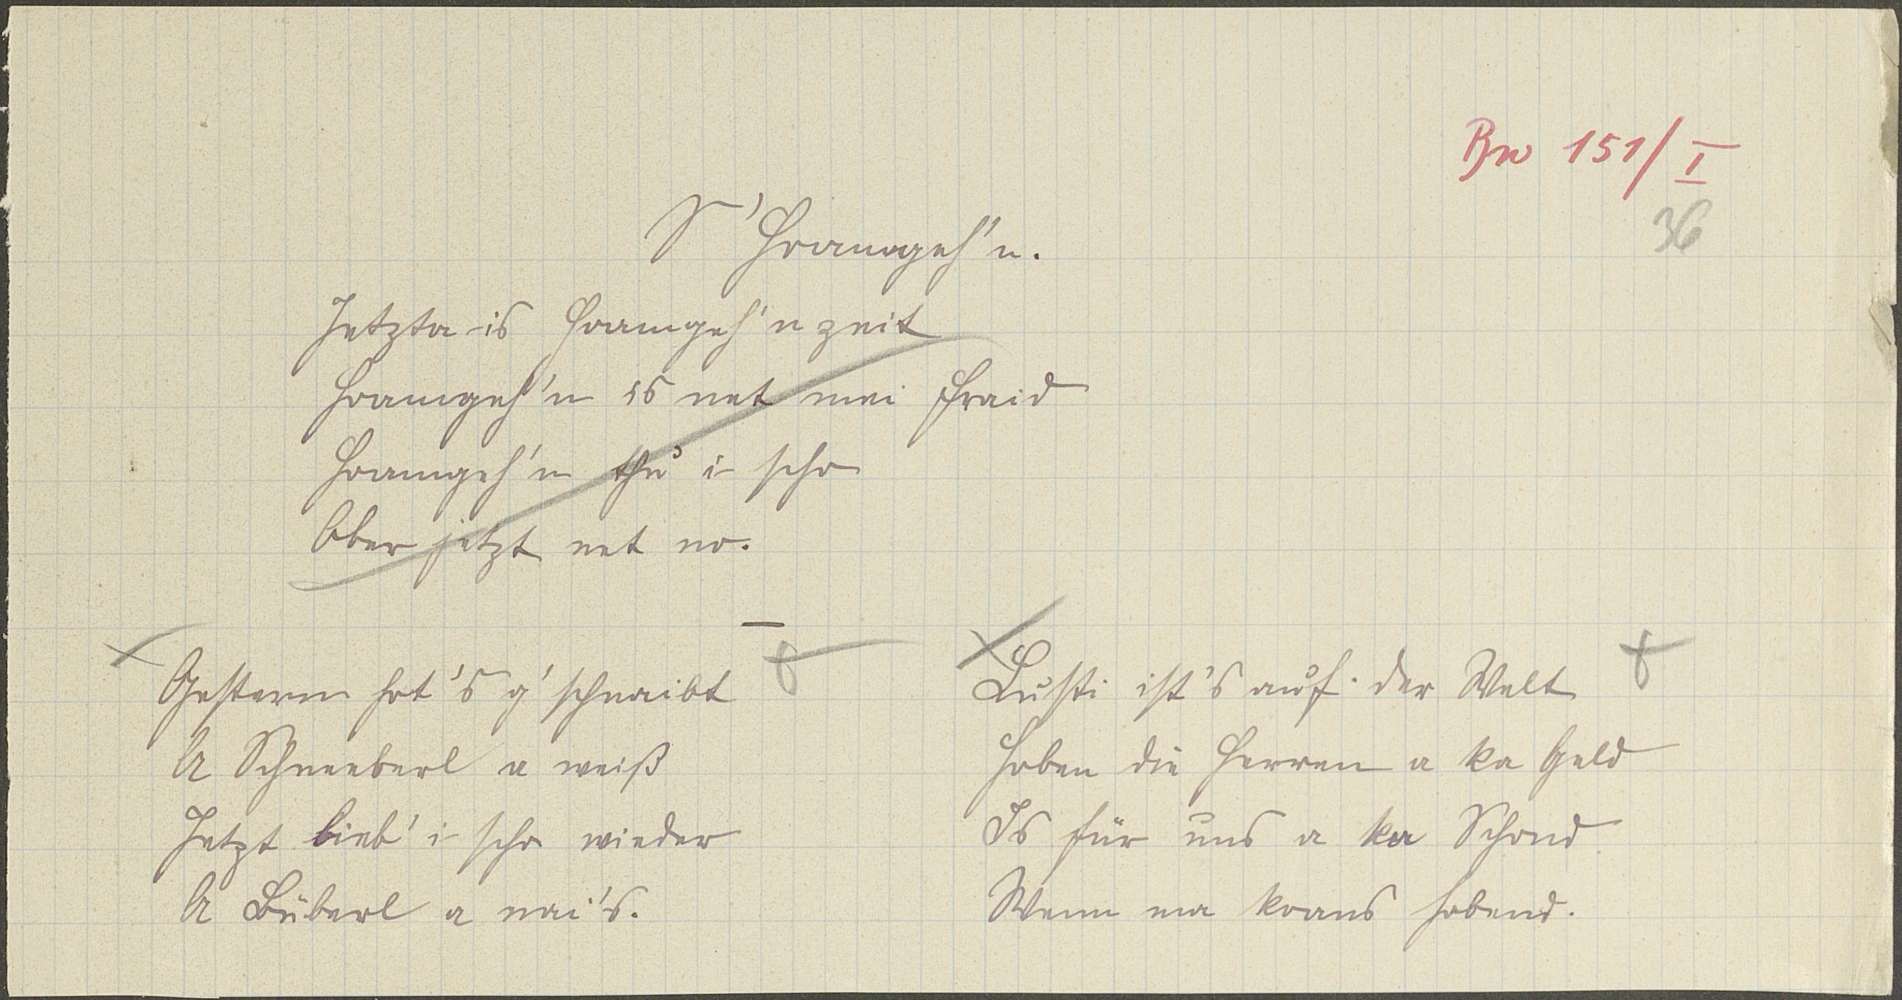 Bw 151/I
36
S' Hoamgeh'n.
Jetzta is Hoamgeh'n zeit
Hoamgeh'n is net mei Fraid
Hoamgeh'n thu' i scho
Ober jetzt net no.
Gestern hot's g'schneibt
A Schneeberl a weiß
Jetzt lieb' i scho wieder
A Büberl a nai's.
Lusti ist's auf der Welt
Hoben die Herren a ka Geld
Is für uns a ka Schond
Wenn ma koans hobend.